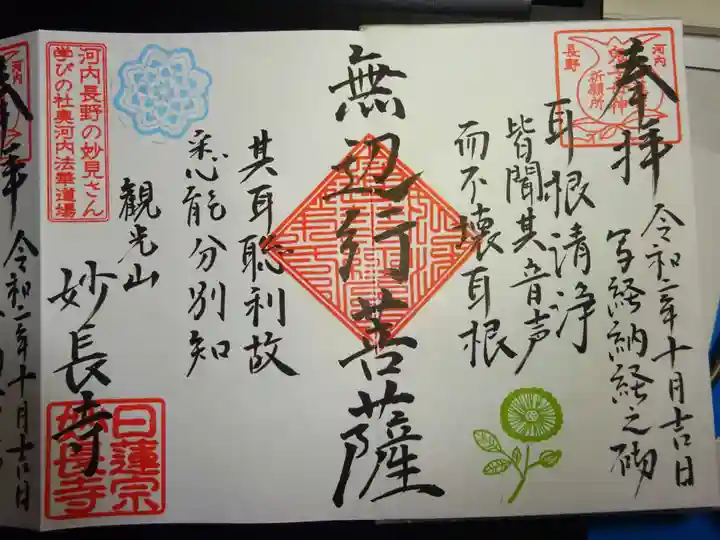 奉拝
河内
長野
祈願所
令和二年十月吉日
写経納経之砌
耳根清浄
皆聞其音声
而不壊耳根
無辺行菩薩
其耳聡利故
悉能分別知
観光山
妙長寺
河内長野の妙見さん
学びの杜奥河内法華道場
日蓮宗
妙長寺
河内
奉拝
令和二年十月吉日